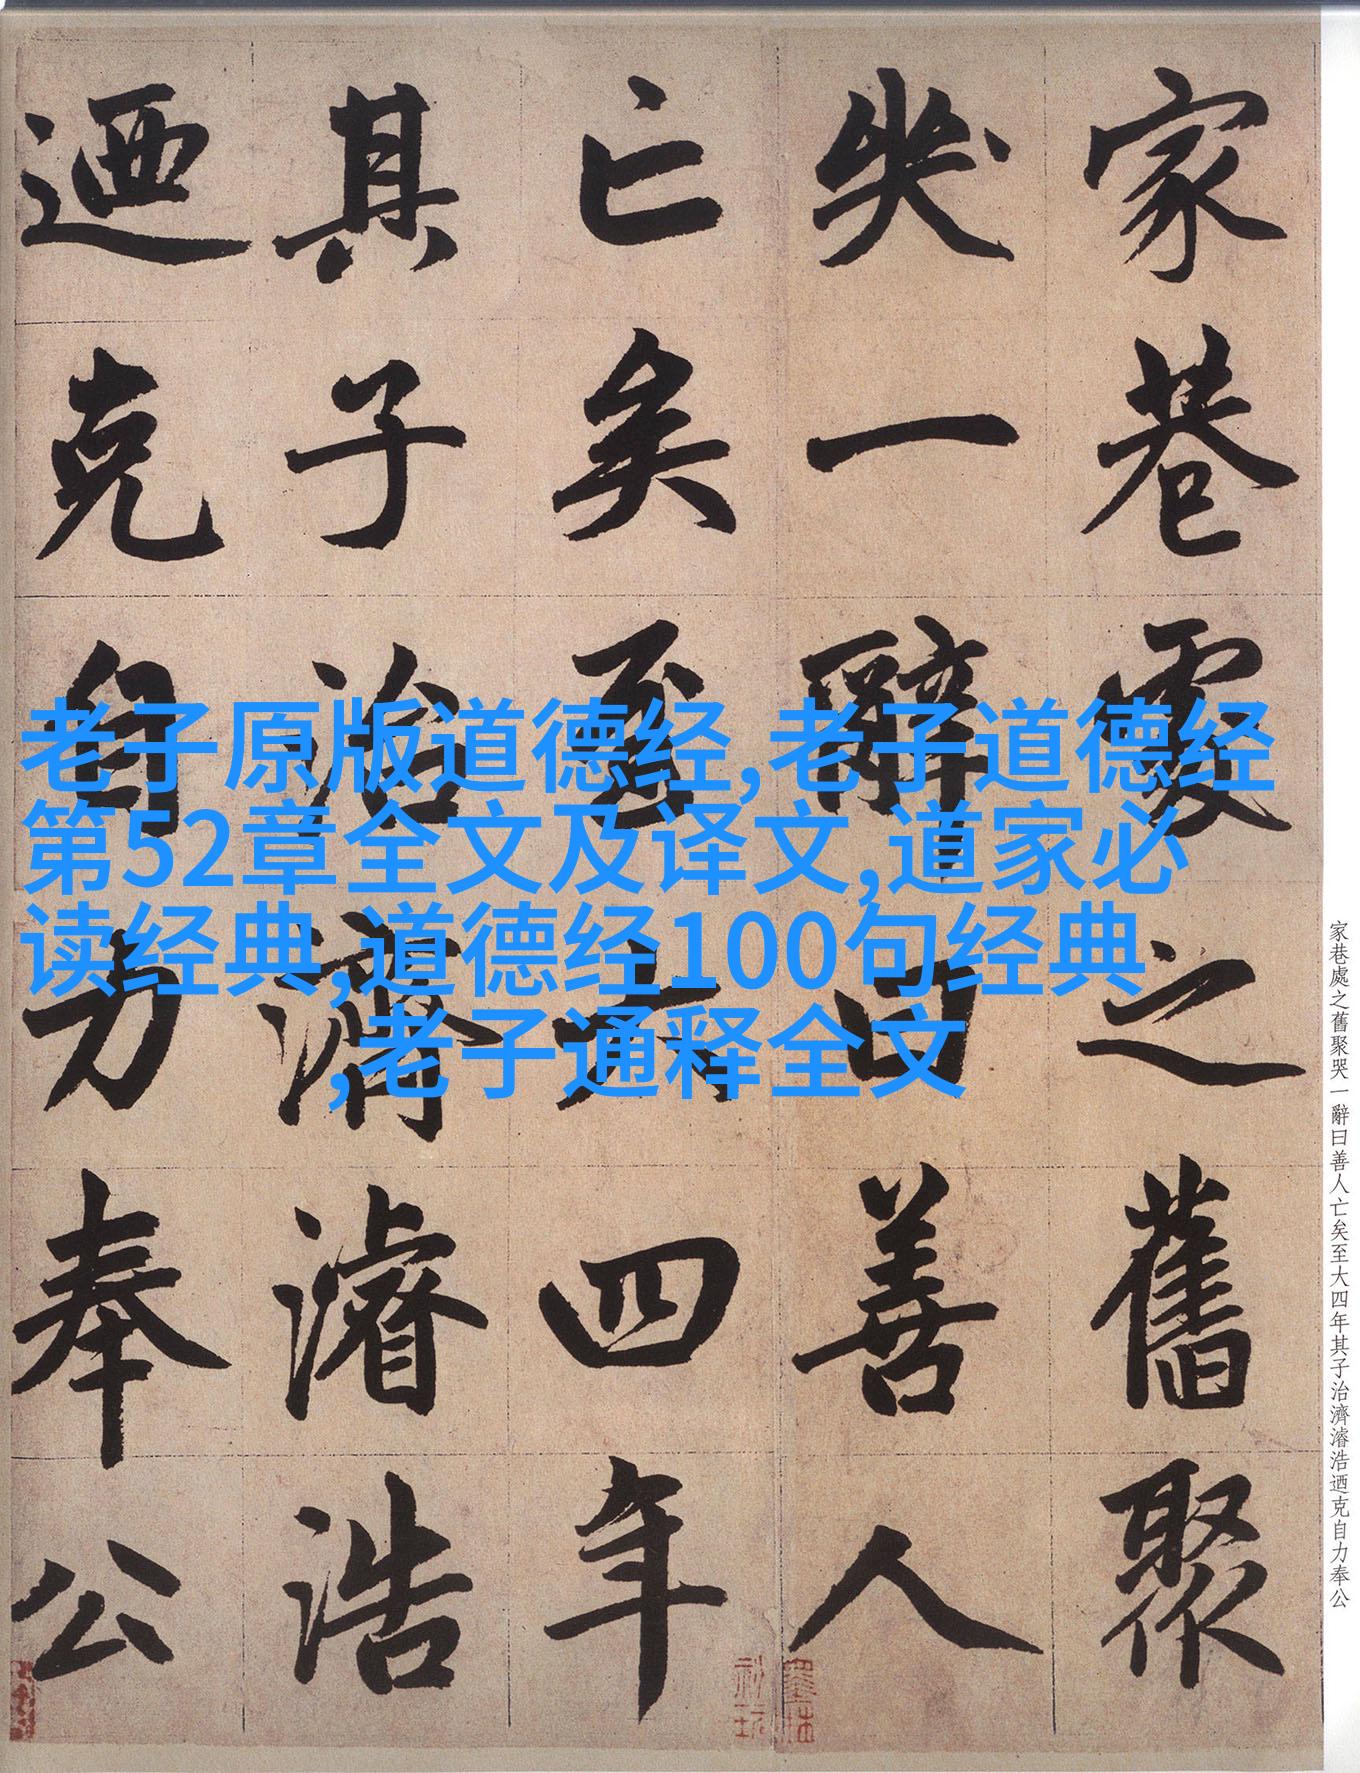 家巷處之舊聚
哭一辭曰善人
亡矣至大四年
其子治濟濬浩
迺克自力奉公
老子原版道德经,老子道德经
第52章全文及译文,道家必
读经典,道德经100句经典
,老子通释全文
家巷處之舊聚哭一辭曰善人亡矣至大四年其子治濟濬浩迺克自力奉公